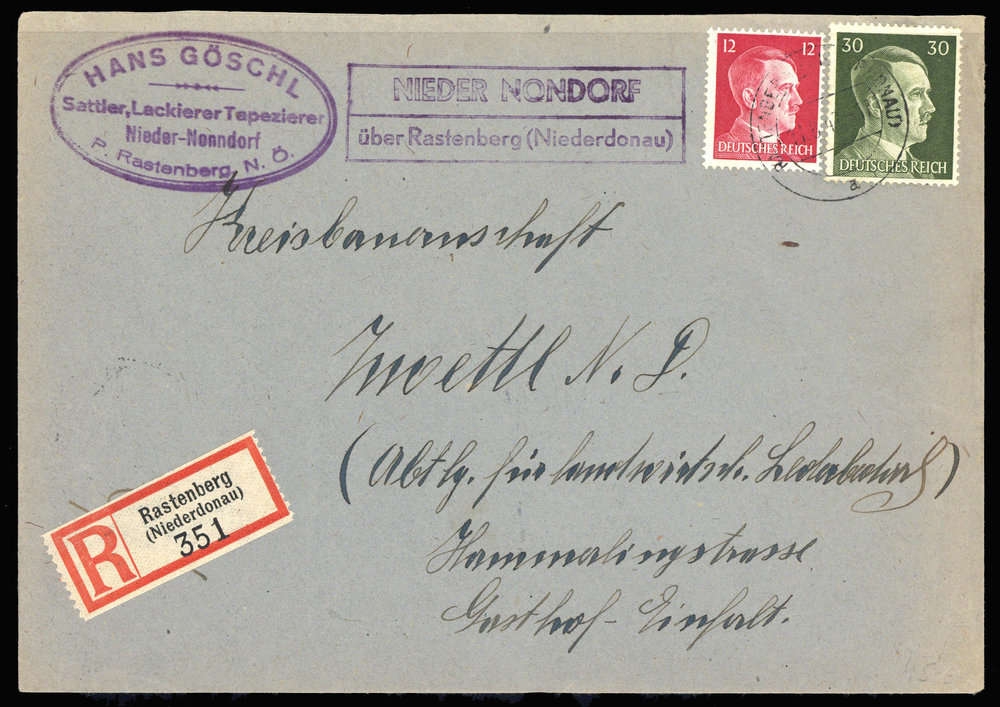 HANS GÖSCHL
Sattler, Lackierer Tapezierer
Nieder-Nonndorf
P. Rastenberg, N. Ö.
NIEDER NONDORF
über Rastenberg (Niederdonau)
12 12
DEUTSCHES REICH
30 30
DEUTSCHES REICH
a
Kreisbauernschaft
Zwettl N. D.
(Abtlg. für landwirtsch. Lederbedarf)
Hammerlingstrasse
Gasthof - Einfalt.
R
Rastenberg
(Niederdonau)
351